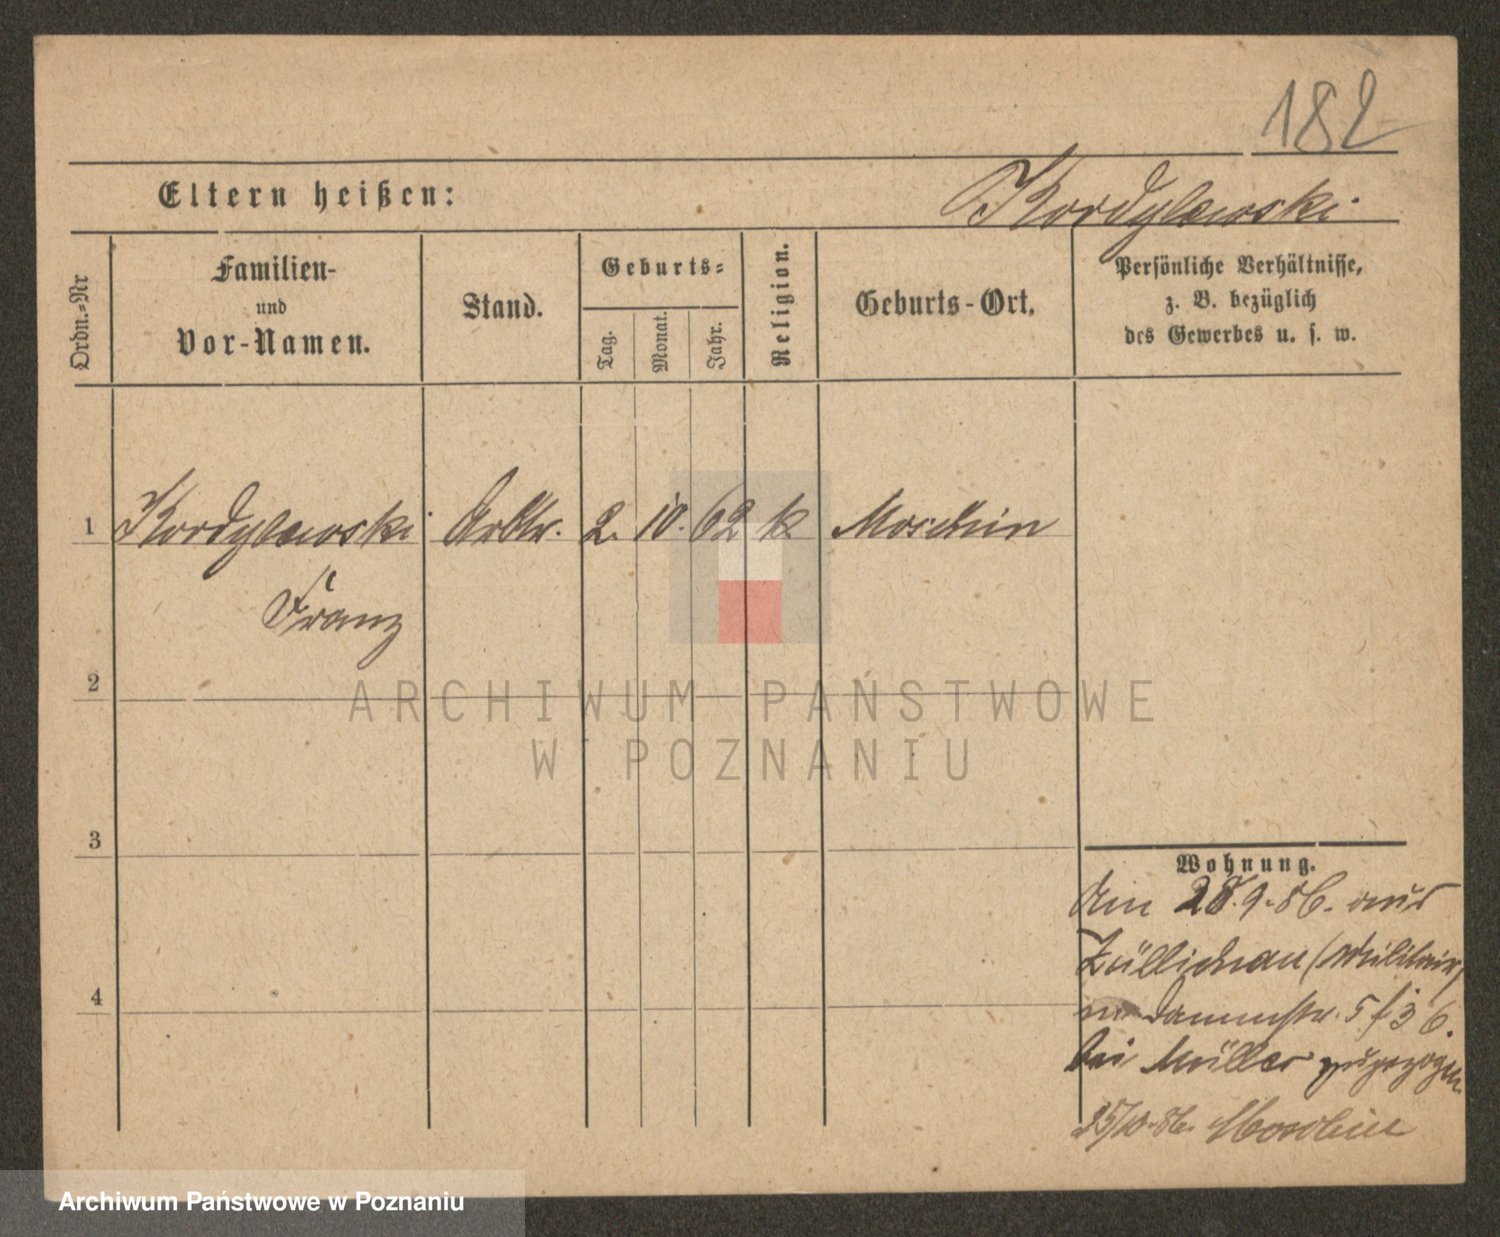 182
Eltern heißen:
Kordylewski
Ordn.-Nr
Familien-
und
Vor-Namen.
Stand.
Geburts-
Tag.
Monat.
Jahr.
Religion.
Geburts-Ort.
Persönliche Verhältnisse,
z. B. bezüglich
des Gewerbes u. s. w.
1 Kordylewski Arbtr. 2. 10. 62 k Moschin
Franz
2
ARCHIWUM PAŃSTWOWE
W POZNANIU
3
4
Wohnung.
Am 28.9.86. aus
Züllichau (Militair)
Dammstr. 5 f 3 6.
bei Müller zugezogen
25/10.86. Moschin
Archiwum Państwowe w Poznaniu